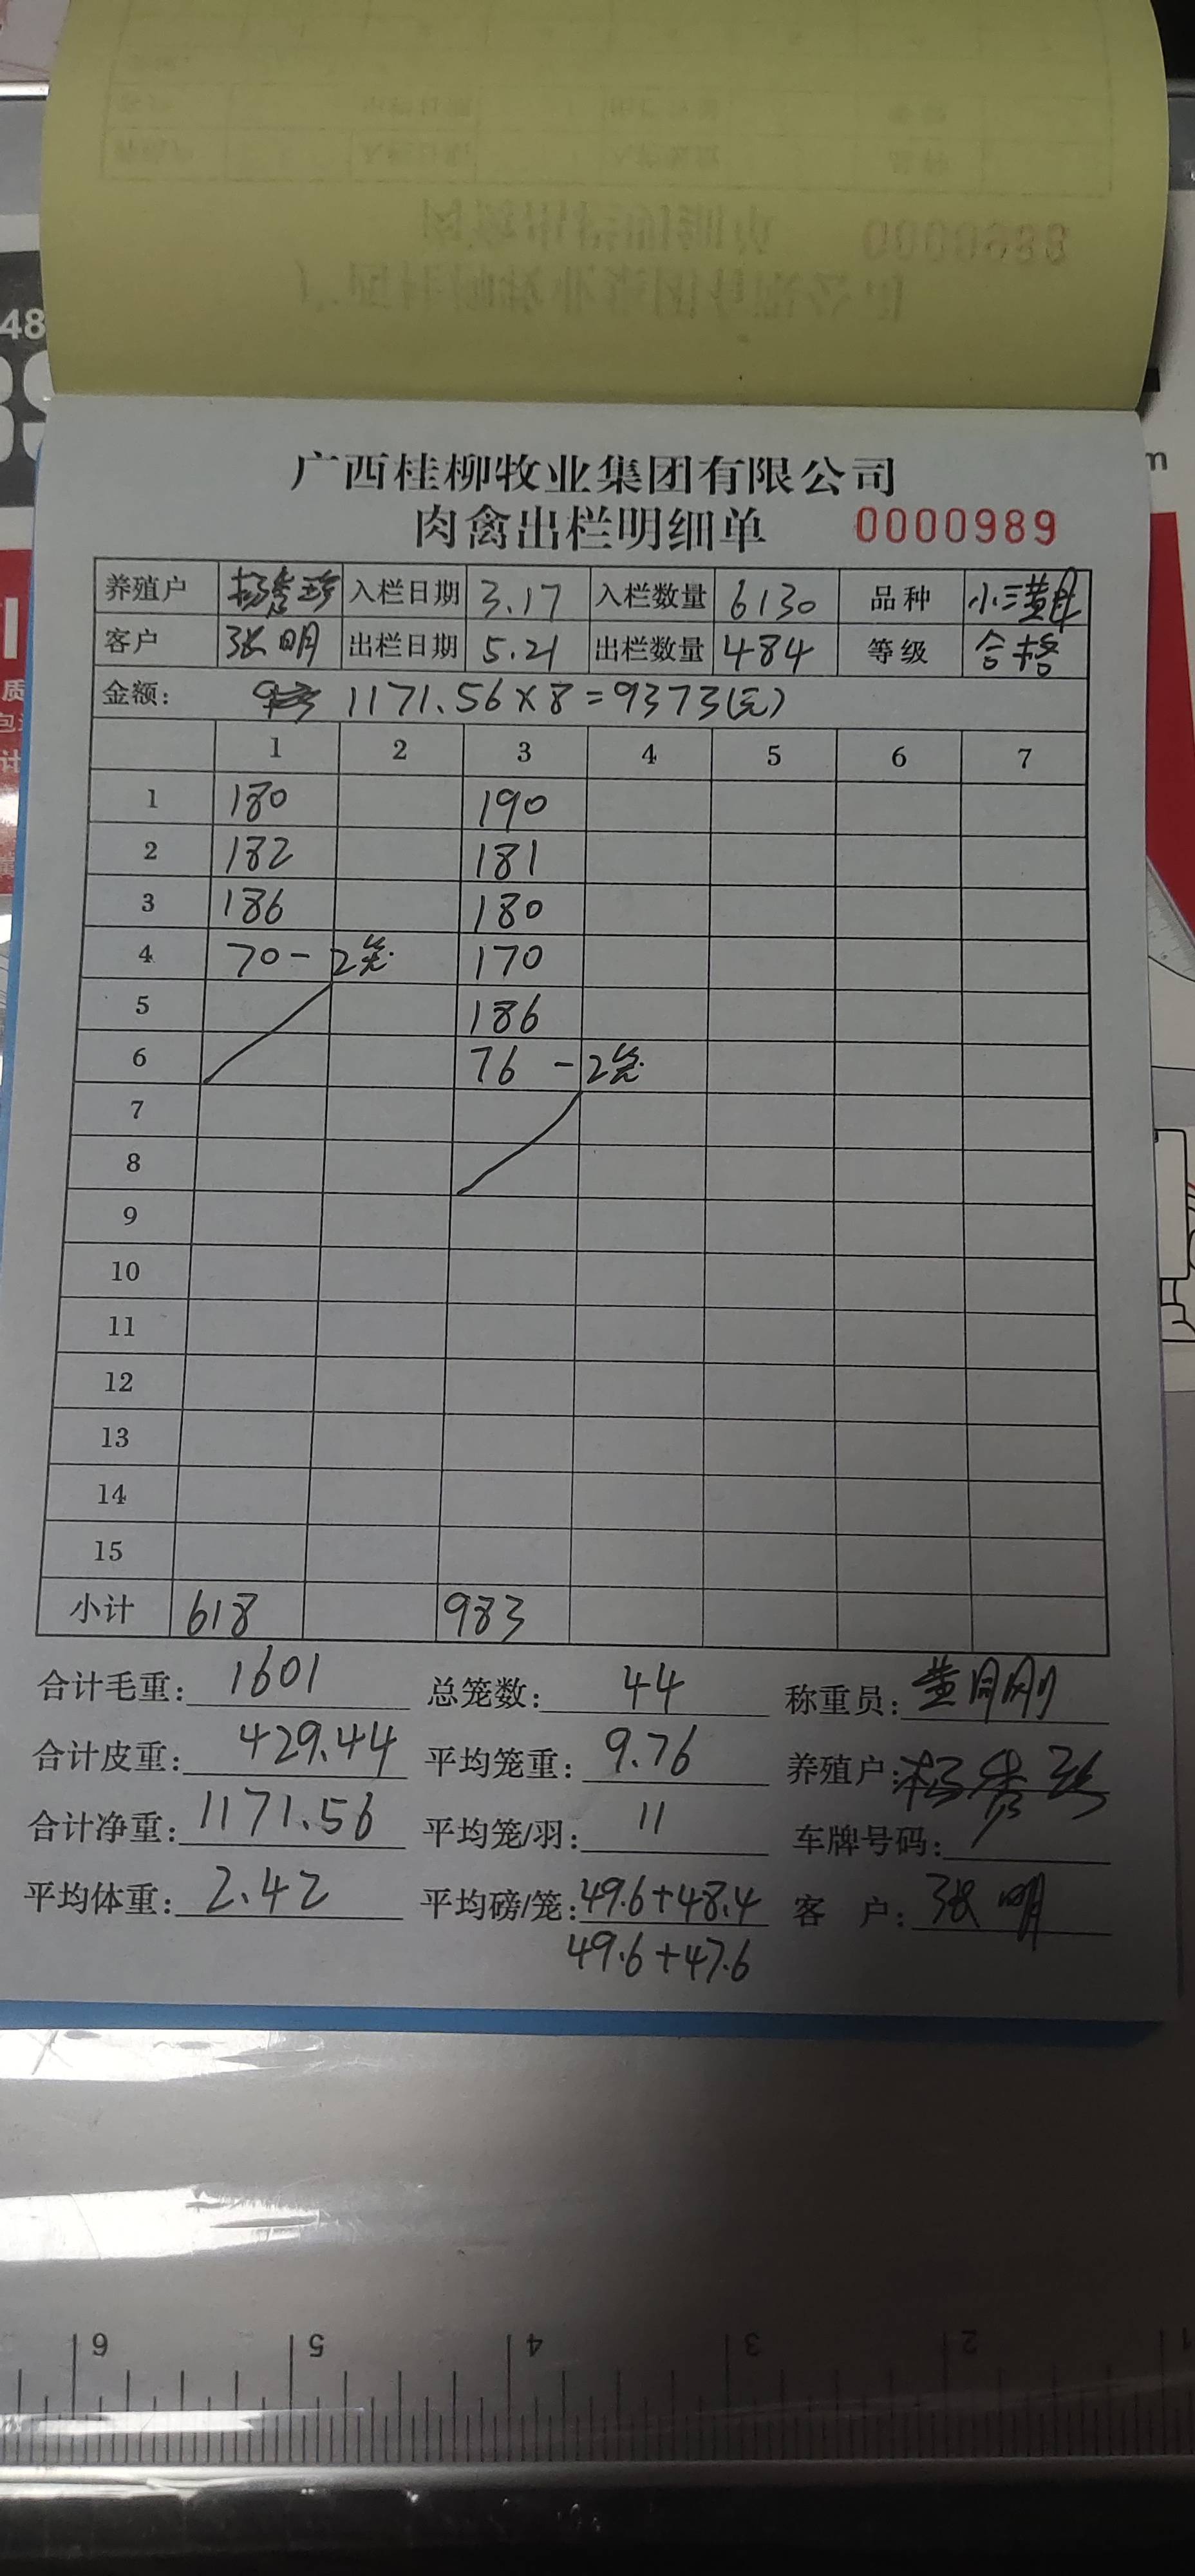 广西桂柳牧业集团有限公司
肉禽出栏明细单 0000989
养殖户 杨秀珍 入栏日期 3.17 入栏数量 6130 品种 小三黄
客户 张明 出栏日期 5.21 出栏数量 484 等级 合格
金额: 1171.56×8=9373(元)
1 2 3 4 5 6 7
1 180 190
2 182 181
3 186 180
4 70-2笼 170
5 186
6 76-2笼
7
8
9
10
11
12
13
14
15
小计 618 983
合计毛重: 1601 总笼数: 44 称重员: 黄刚
合计皮重: 429.44 平均笼重: 9.76 养殖户: 杨秀珍
合计净重: 1171.56 平均笼/羽: 11 车牌号码:
平均体重: 2.42 平均磅/笼: 49.6+48.4 客户: 张明
49.6+47.6
48
m
6 5 4 3 2 1